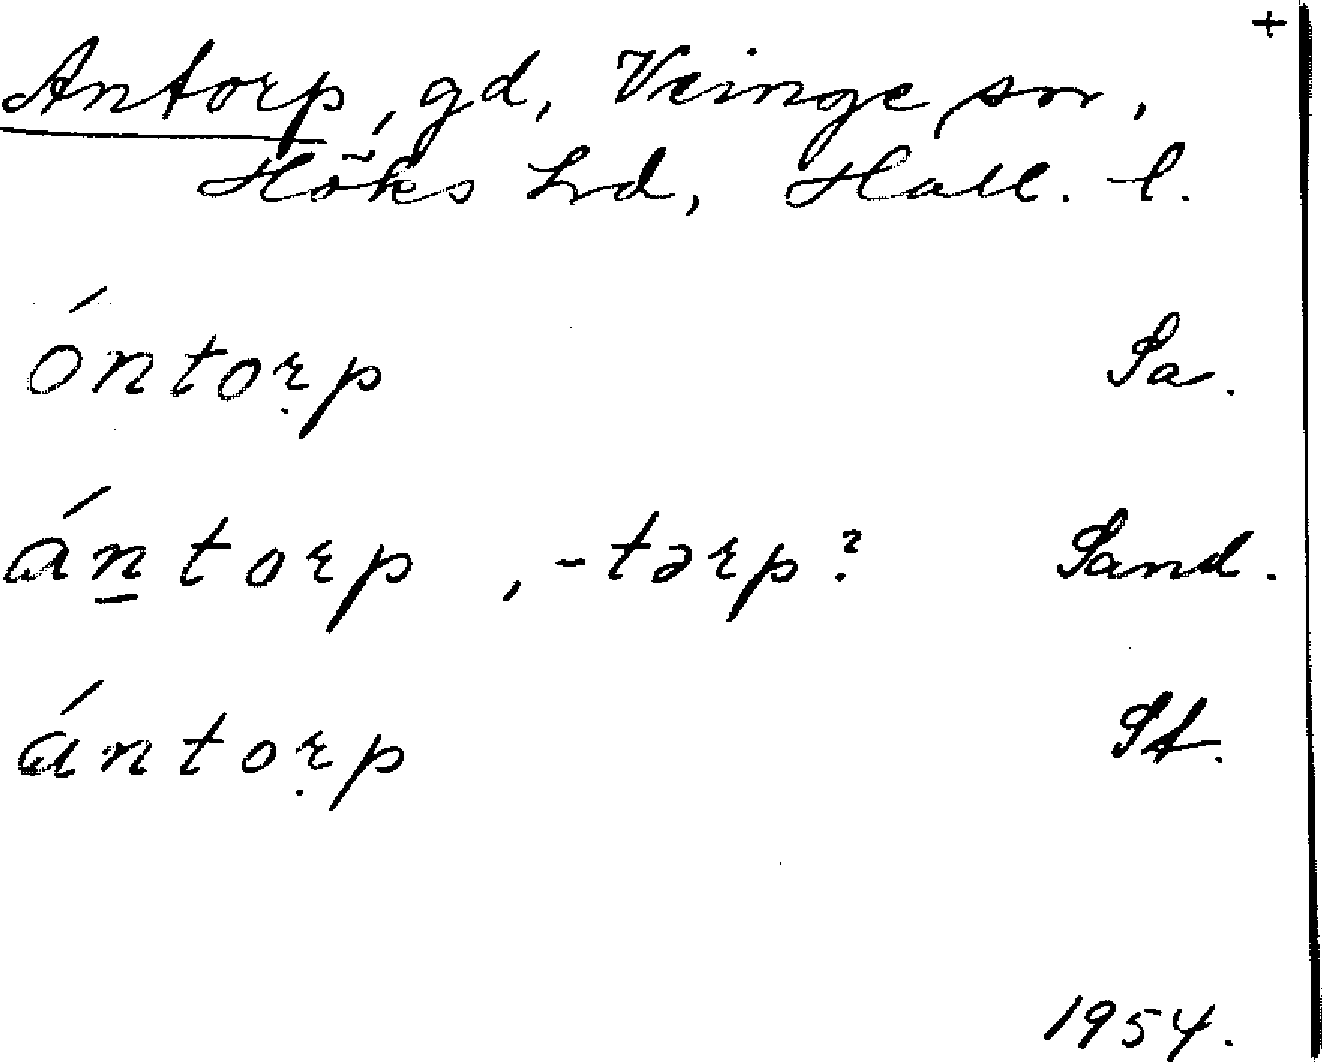 +
Antorp, gd, Veinge sn,
Höks hd, Hall. l.
óntoꝛ̣p Sa.
án̲toꝛp, -təꝛp? Sand.
ántoꝛ̣p St.
1954.